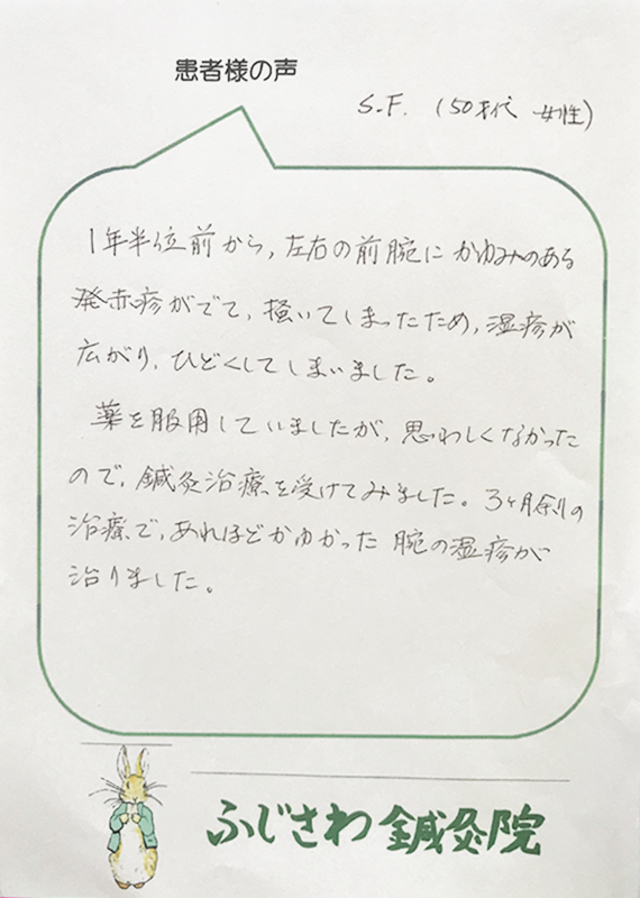 患者様の声
S.F. (50才代 女性)
1年半位前から,左右の前腕に かゆみのある
発赤疹がでて,掻いてしまったため,湿疹が
広がり,ひどくしてしまいました。
薬を服用していましたが,思わしくなかった
ので,鍼灸治療を受けてみました。3ヶ月余りの
治療で,あれほどかゆかった 腕の湿疹が
治りました。
ふじさわ鍼灸院